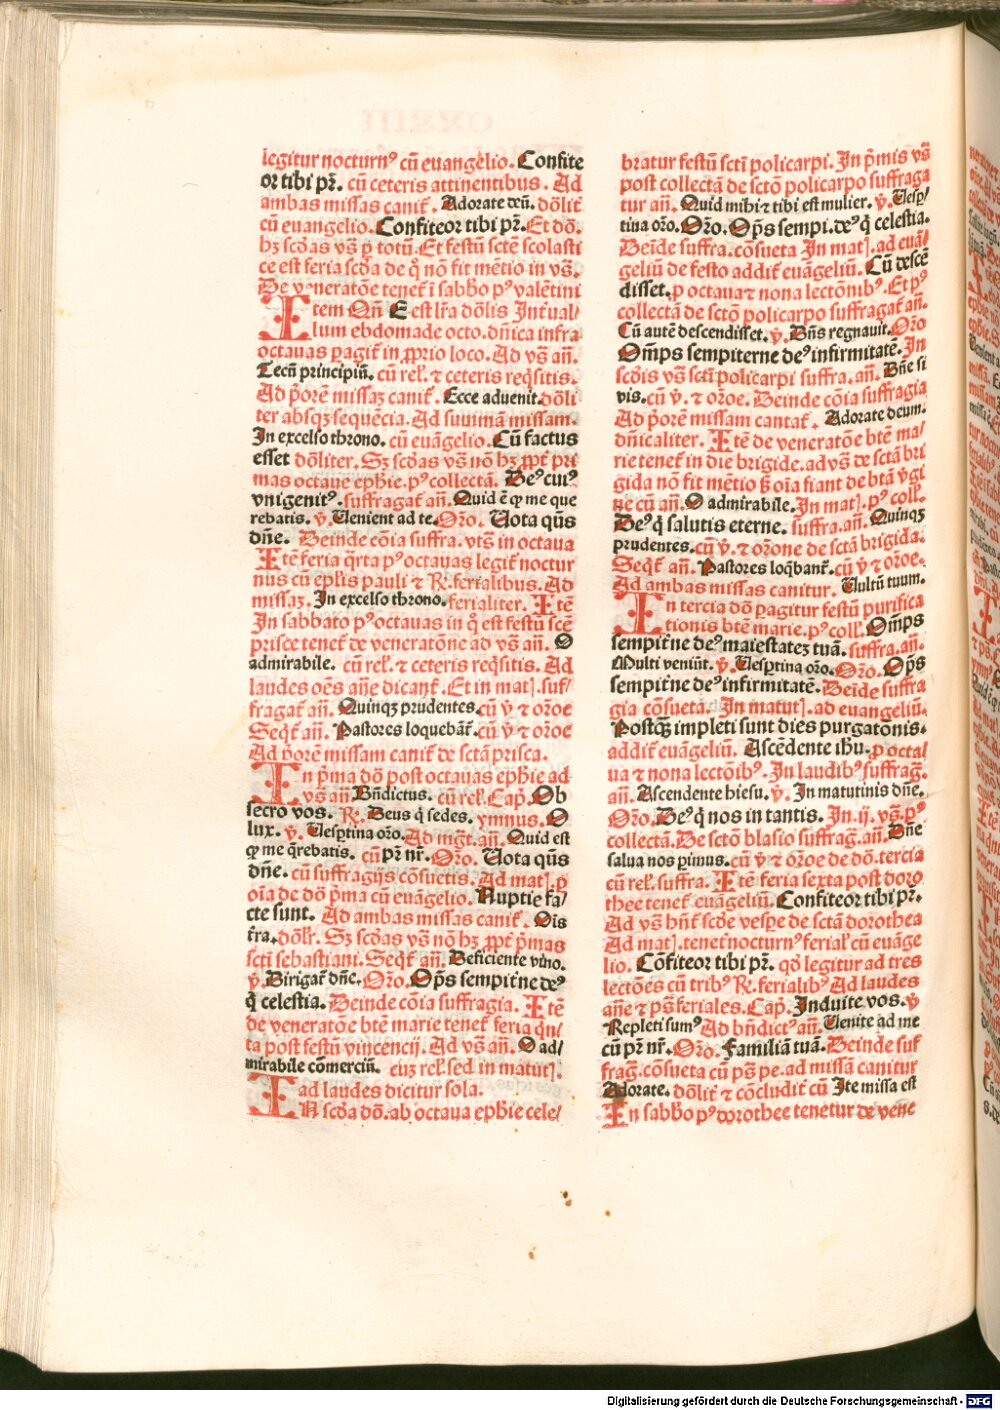 legitur nocturnꝰ cū euangelio. Confite
or tibi pr̄. cū ceteris attinentibus. Ad
ambas missas canit᷑. Adorate deū. dn̄lit᷑
cū euangelio. Confiteor tibi pr̄. Et dō.
hꝫ scd̄as vs̄ ꝑ totū. Et festū sctē scolasti
ce est feria scd̄a de q̊ nō fit mētio in vs̄.
De veneratōe tenet᷑ ī sabb̄o pꝰ valētini
Item Qn̄ E est lr̄a dn̄lis Intual/
lum ebdomade octo. dn̄ica infra
octauas pagit᷑ in ꝓprio loco. Ad vs̄ an̄.
Tecū principiū. cū rel᷑. ⁊ ceteris reqͥsitis.
Ad p̄orē missaꝫ canit᷑. Ecce aduenit. dn̄li
ter absqꝫ sequēcia. Ad summā missam.
In excelso throno. cū euāgelio. Cū factus
esset dn̄liter. Sꝫ scd̄as vs̄ nō hꝫ ꝓpt᷑ pri
mas octaue ephīe. pꝰ collectā. Deꝰ cuiꝰ
vnigenitꝰ. suffragat᷑ an̄. Quid ē ꝙ me que
rebatis. v̄. Uenient ad te. Or̄o. Uota qūs
dn̄e. Deinde cōia suffra. vts̄ in octaua
Itē feria q̄rta pꝰ octauas legit᷑ noctur
nus cū epl̄is pauli ⁊ R̄. ferialibus. Ad
missaꝫ. In excelso throno. ferialiter. Itē
In sabbato pꝰ octauas in q̊ est festū scē
prisce tenet᷑ de veneratōne ad vs̄ an̄. O
admirabile. cū rel᷑. ⁊ ceteris reqͥsitis. Ad
laudes oēs an̄e dicant᷑. Et in mat]. suf/
fragat᷑ an̄. Quinqꝫ prudentes. cū v̄ ⁊ or̄oe
Seqt᷑ an̄. Pastores loquebāt᷑. cū v̄ ⁊ or̄oe
Ad p̄orē missam canit᷑ de sctā prisca.
In pͥma dō post octauas ephīe ad
vs̄ an̄ Bn̄dictus. cū rel᷑. Cap̄. Ob
secro vos. R̄. Deus q̄ sedes. ymnus. O
lux. v̄. Uesꝑtina or̄o. Ad mgt᷑. an̄. Quid est
ꝙ me q̄rebatis. cū pr̄ nr̄. Or̄o. Uota qūs
dn̄e. cū suffragijs cōsuetis. Ad mat]. ꝑ
oīa de dō pͥma cū euāgelio. Nuptie fa/
cte sunt. Ad ambas missas canit᷑. Ois
tr̄a. dn̄lr̄. Sꝫ scd̄as vs̄ nō hꝫ ꝓpt᷑ pͥmas
sctī sebastiani. Seqt᷑ an̄. Deficiente vino.
v̄. Dirigat᷑ dn̄e. Or̄o. Op̄s sempit᷑ne deꝰ
q̄ celestia. Deinde cōia suffragia. Itē
de veneratōe btē marie tenet᷑ feria qͥn/
ta post festū vincencij. Ad vs̄ an̄. O ad/
mirabile cōmerciū. eiꝫ rel᷑. sed in matut].
ad laudes dicitur sola.
IN scd̄a dō. ab octaua ephīe cele/
bratur festū sctī policarpi. In pͥmis vs̄
post collectā de sctō policarpo suffraga
tur an̄. Quid mihi ⁊ tibi est mulier. v̄. Uesꝑ/
tina or̄o. Or̄o. Op̄s sempi. deꝰ q̄ celestia.
Deīde suffra. cōsueta In mat]. ad euā/
geliū de festo addit᷑ euāgeliū. Cū descē
disset. ꝑ octaua ⁊ nona lectōnibꝰ. Et pꝰ
collectā de sctō policarpo suffragat᷑ an̄.
Cū autē descendisset. v̄. Dn̄s regnauit. Or̄o
Om̄ps sempiterne deꝰ infirmitatē. In
scd̄is vs̄ sctī policarpi suffra. an̄. Dn̄e si
vis. cū v̄. ⁊ or̄oe. Deinde cōia suffragia
Ad p̄orē missam cantat᷑. Adorate deum.
dn̄icaliter. Itē de veneratōe btē ma/
rie tenet᷑ in die brigide. ad vs̄ de sctā bri
gida nō fit mētio ß oīa fiant de btā v̄gi
ne cū an̄. O admirabile. In mat]. pꝰ coll.
Deꝰ q̄ salutis eterne. suffra. an̄. Quinqꝫ
prudentes. cū v̄. ⁊ or̄one de sctā brigida.
Seqt᷑ an̄. Pastores loqͥbant᷑. cū v̄ ⁊ or̄oe.
Ad ambas missas canitur. Uultū tuum.
In tercia dō pagitur festū purifica
tionis btē marie. pꝰ coll. Om̄ps
sempit᷑ne deꝰ maiestateꝫ tuā. suffra. an̄.
Multi veniūt. v̄. Uesꝑtina or̄o. Or̄o. Op̄s
sempit᷑ne deꝰ infirmitatē. Deīde suffra
gia cōsueta. In matut]. ad euangeliū.
Postqꝫ impleti sunt dies purgatōnis.
addit᷑ euāgeliū. Ascēdente ihū. ꝑ octa/
ua ⁊ nona lectōibꝰ. In laudibꝰ suffraḡ.
an̄. Ascendente hiesu. v̄. In matutinis dn̄e.
Or̄o. Deꝰ q̄ nos in tantis. In .ij. vs̄. pꝰ
collectā. De sctō blasio suffrag. an̄. Dn̄e
salua nos pimus. cū v̄ ⁊ or̄oe de dō. tercia
cū rel᷑. suffra. Itē feria sexta post doro
thee tenet᷑ euāgeliū. Confiteor tibi pr̄.
Ad vs̄ hn̄t᷑ scd̄e vespe de sctā dorothea
Ad mat]. tenet᷑ nocturnꝰ ferial᷑ cū euāge
lio. Cōfiteor tibi pr̄. qd̄ legitur ad tres
lectōes cū tribꝰ R̄. ferialibꝰ Ad laudes
an̄e ⁊ ps̄ feriales. Cap̄. Induite vos. v̄
Repleti sumꝰ Ad bn̄dictꝰ an̄. Uenite ad me
cū pr̄ nr̄. Or̄o. Familiā tuā. Deinde suf
frag. cōsueta cū ps̄ pe. ad missā canitur
Adorate. dn̄lit᷑ ⁊ cōcludit᷑ cū Ite missa est
In sabb̄o pꝰ dorothee tenetur de vene
Digitalisierung gefördert durch die Deutsche Forschungsgemeinschaft - DFG